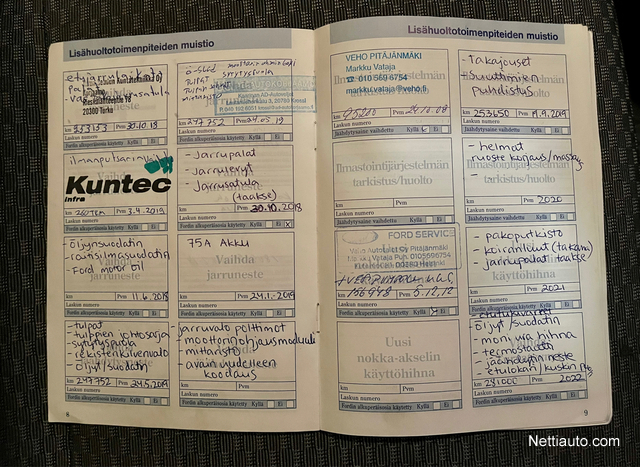 Lisähuoltotoimenpiteiden muistio
20300 Turku
km 233133 Pvm 30.10.18
Laskun numero
Fordin alkuperäisosia käytetty Kyllä Ei
Ö-suod
tulpat
km 247 352 Pvm 24.05.19
Laskun numero
Fordin alkuperäisosia käytetty Kyllä Ei
Kuntec
infra
km Pvm 3.4.2019
Laskun numero
Fordin alkuperäisosia käytetty Kyllä Ei
- Jarrupalat
- Jarrulevyt
- Jarrusatula
(taakse)
km Pvm 30.10.2018
Laskun numero
Fordin alkuperäisosia käytetty Kyllä Ei
- öljynsuodatin
- raitisilmasuodatin
- Ford motor oil
jarruneste
km Pvm 11.6.2018
Laskun numero
Fordin alkuperäisosia käytetty Kyllä Ei
75A Akku
Vaihda
jarruneste
km Pvm 24.1.-2019
Laskun numero
Fordin alkuperäisosia käytetty Kyllä Ei
- tulpat
- tulppien johtosarja
- sytytyspuola
- rekisterikilvenvalo
- öljyt/suodatin
km 247352 Pvm 24.5.2019
Laskun numero
Fordin alkuperäisosia käytetty Kyllä Ei
- jarruvalo polttimot
- moottorinohjausmoduuli
- mittaristo
- avain uudelleen
koodaus
km Pvm
Laskun numero
Fordin alkuperäisosia käytetty Kyllä Ei
8
Lisähuoltotoimenpiteiden muistio
VEHO PITÄJÄNMÄKI
Markku Vataja
010 569 6754
markku.vataja@veho.fi
km 95200 Pvm 24.10.08
Laskun numero
Jäähdytysaine vaihdettu Kyllä Ei
- Takajouset
- Suuttimien
puhdistus
km 253650 Pvm 1.9.2019
Laskun numero
Jäähdytysaine vaihdettu Kyllä Ei
Ilmastointijärjestelmän
tarkistus/huolto
km Pvm
Laskun numero
Jäähdytysaine vaihdettu Kyllä Ei
- helmat
ruoste korjaus/
tarkistus/huolto
km Pvm 2020
Laskun numero
Jäähdytysaine vaihdettu Kyllä Ei
FORD SERVICE
Veho Autotalot Oy Pitäjänmäki
00380 Helsinki
km 156948 Pvm 5.12.12
Laskun numero
Fordin alkuperäisosia käytetty Kyllä Ei
- pakoputkisto
- koiranluut (takana)
- jarrupalat (taakse)
käyttöhihna
km Pvm 2021
Laskun numero
Fordin alkuperäisosia käytetty Kyllä Ei
Uusi
nokka-akselin
käyttöhihna
km Pvm
Laskun numero
Fordin alkuperäisosia käytetty Kyllä Ei
- öljyt/suodatin
- moniura hihna
- termostaatti
- jäähdytinneste
- etulokari/kuskin
km Pvm 2022
Laskun numero
Fordin alkuperäisosia käytetty Kyllä Ei
9
Nettiauto.com